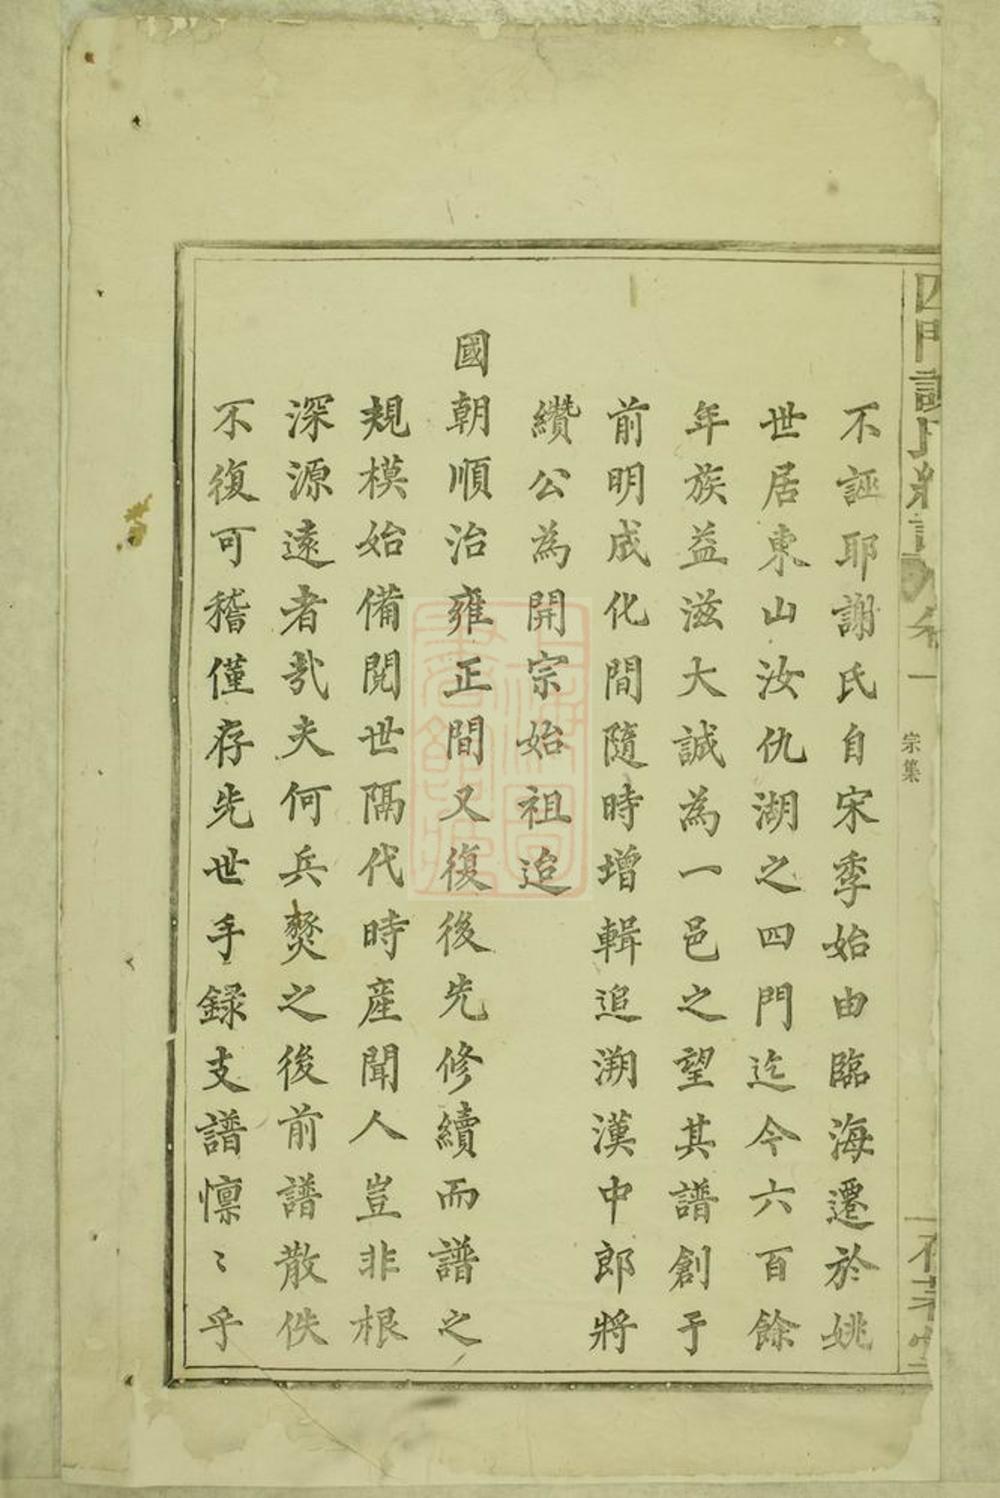 不誣耶謝氏自宋季始由臨海遷於姚
世居東山汝仇湖之四門迄今六百餘
年族益滋大誠為一邑之望其譜創于
前明成化間隨時增輯追溯漢中郎將
纘公為開宗始祖迨
國朝順治雍正間又復後先修續而譜之
規模始備閱世隔代時產聞人豈非根
深源遠者哉夫何兵燹之後前譜散佚
不復可稽僅存先世手録支譜懍〻乎
四門謝氏
一
宗集